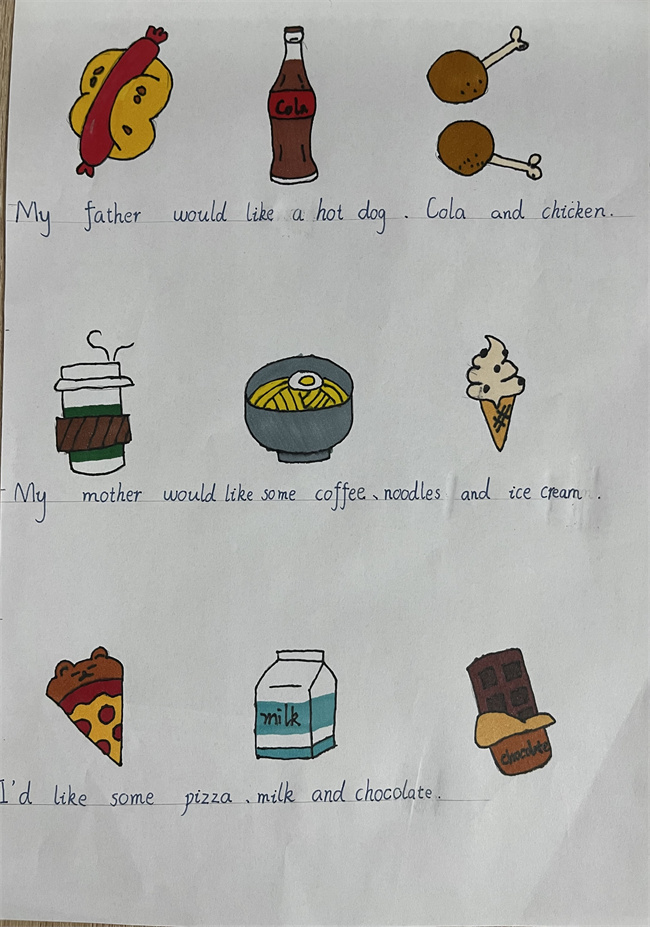 Cola
My father would like a hot dog . Cola and chicken.
My mother would like some coffee、noodles and ice cream .
milk
chocolate
I'd like some pizza 、milk and chocolate.